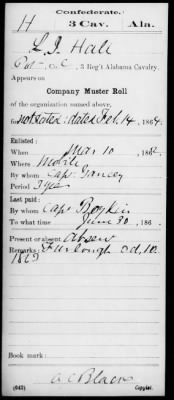 Confederate.
H 3 Cav. Ala.
L. J. Hall
Pvt, Co. C, 3 Reg't Alabama Cavalry.
Appears on
Company Muster Roll
of the organization named above,
for not stated: dated Feb. 14, 1864.
Enlisted:
When Mar 10, 1862.
Where Mobile
By whom Cap. Yancey
Period 3 yrs
Last paid:
By whom Cap Boykin
To what time June 30, 186
Present or absent Absent
Remarks: Furlough
1863
Book mark:
(642) Copyist.